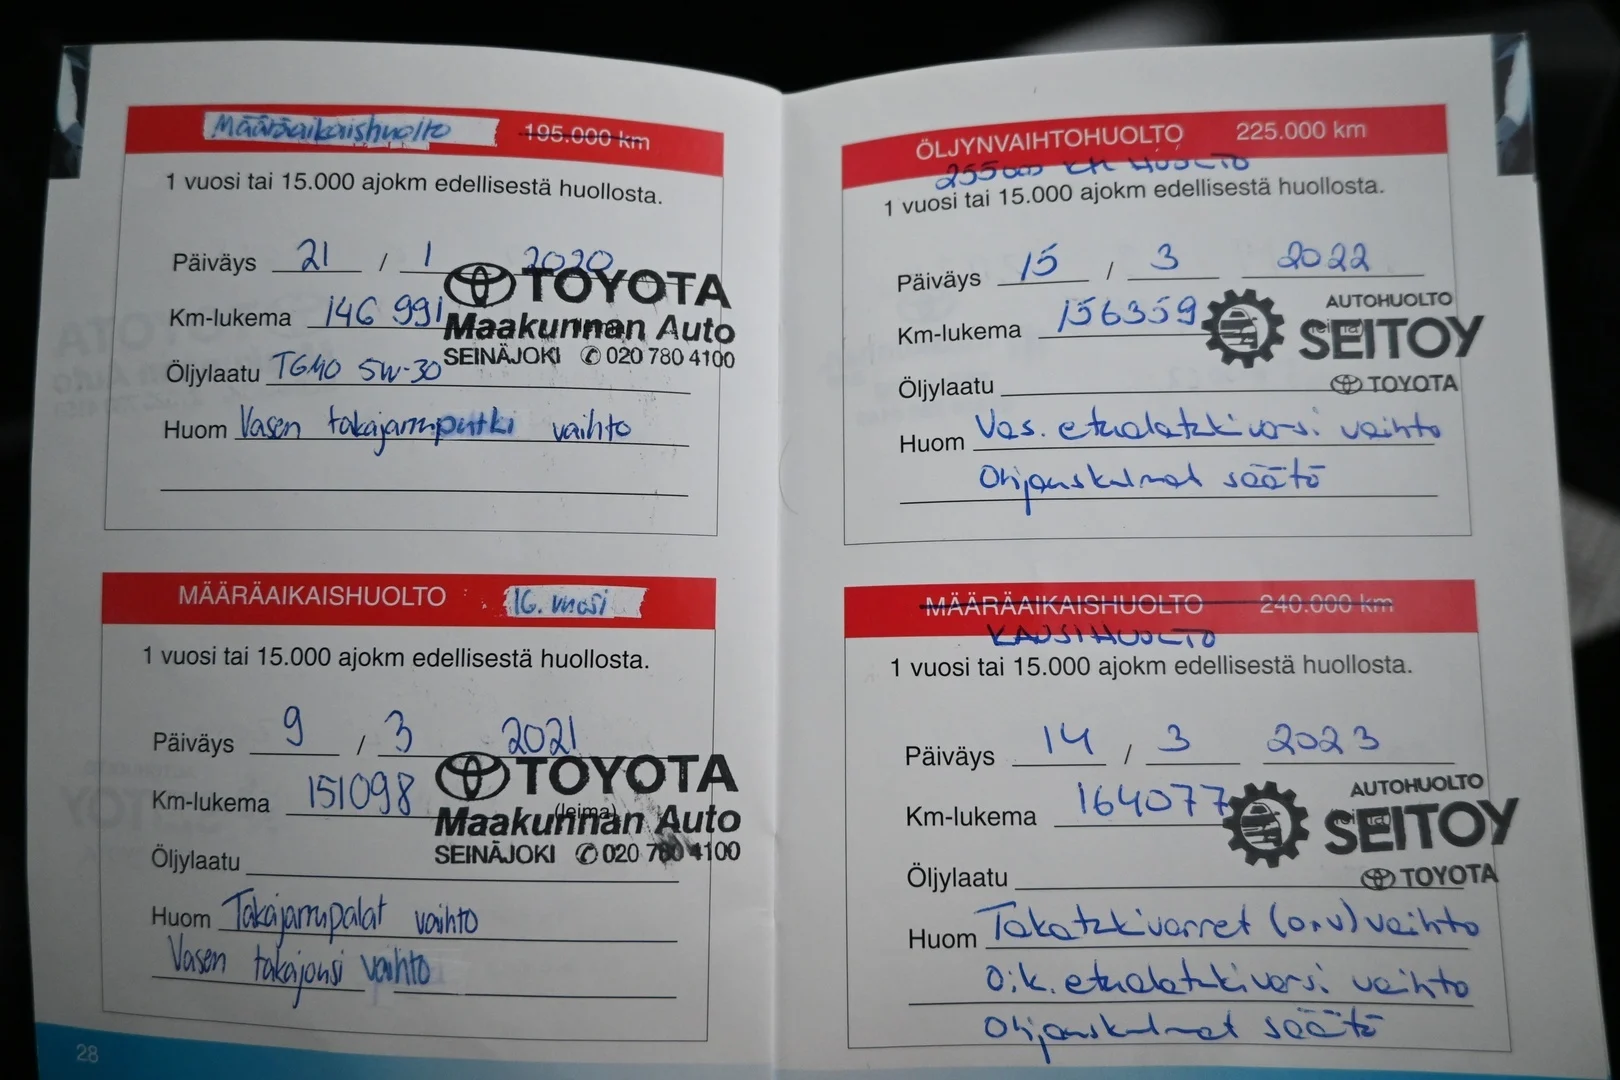 Määräaikaishuolto 195.000 km
1 vuosi tai 15.000 ajokm edellisestä huollosta.
Päiväys 21 / 1 2020
TOYOTA
Km-lukema 146 991
Maakunnan Auto
SEINÄJOKI ✆ 020 780 4100
Öljylaatu TGMO 5W-30
Huom Vasen takajarruputki vaihto
MÄÄRÄAIKAISHUOLTO 16. vuosi
1 vuosi tai 15.000 ajokm edellisestä huollosta.
Päiväys 9 / 3 2021
TOYOTA
Km-lukema 151098
(leima)
Maakunnan Auto
SEINÄJOKI ✆ 020 780 4100
Öljylaatu
Huom Takajarrupalat vaihto
Vasen takajousi vaihto
28
ÖLJYNVAIHTOHUOLTO 225.000 km
255000 KM HUOLTO
1 vuosi tai 15.000 ajokm edellisestä huollosta.
Päiväys 15 / 3 2022
Km-lukema 156359
AUTOHUOLTO
(leima)
SEITOY
TOYOTA
Öljylaatu
Huom Vas. etualatukivarsi vaihto
Ohjauskulmat säätö
MÄÄRÄAIKAISHUOLTO 240.000 km
KAUSIHUOLTO
1 vuosi tai 15.000 ajokm edellisestä huollosta.
Päiväys 14 / 3 2023
Km-lukema 164077
AUTOHUOLTO
SEITOY
TOYOTA
Öljylaatu
Huom Takatukivarret (o.v) vaihto
Oik. etualatukivarsi vaihto
Ohjauskulmat säätö